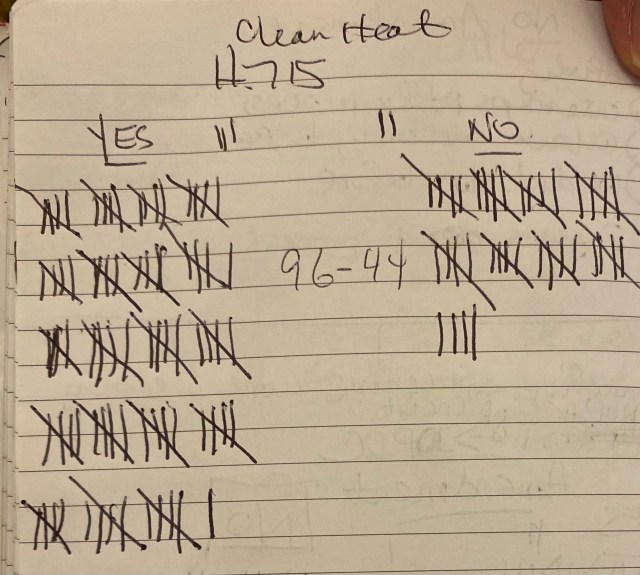 Clean Heat
H.715
YES ||| || NO
96-44